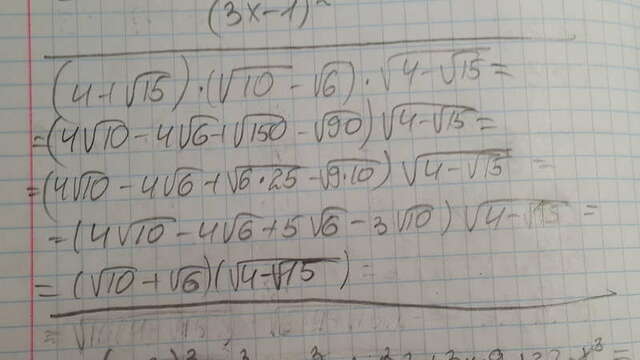 (3x-1)²
(4+√15)·(√10-√6)·√4-√15=
=(4√10-4√6+√150-√90)√4-√15=
=(4√10-4√6+√6·25-√9·10)√4-√15=
=(4√10-4√6+5√6-3√10)√4-√15=
=(√10+√6)(√4-√15)=